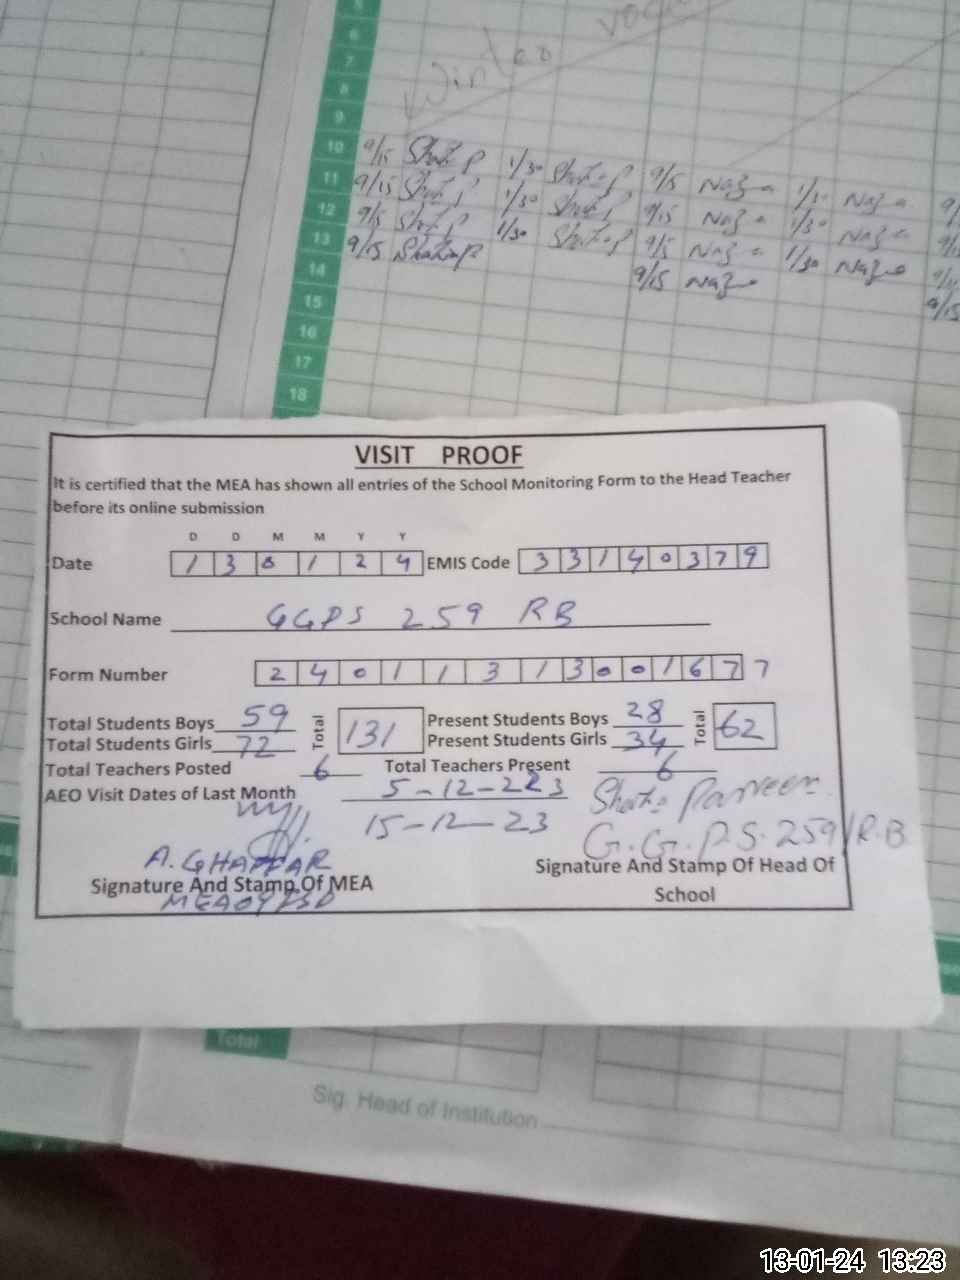 5
6
7
8
9
10 9/15 1/30 9/15 Naz 1/30 Naz
11 9/15 1/30 9/15 Naz 1/30 Naz
12 9/15 1/30 9/15 Naz 1/30 Naz
13 9/15 9/15 Naz
14
15
16
17
18
VISIT PROOF
It is certified that the MEA has shown all entries of the School Monitoring Form to the Head Teacher
before its online submission
D D M M Y Y
Date 1 3 0 1 2 4 EMIS Code 3 3 1 4 0 3 7 9
School Name GGPS 259 RB
Form Number 2 4 0 1 1 3 1 3 0 0 1 6 7 7
Total Students Boys 59 Total 131 Present Students Boys 28 Total 62
Total Students Girls 72 Present Students Girls 34
Total Teachers Posted 6 Total Teachers Present 6
AEO Visit Dates of Last Month 5-12-223 Parveen
15-12-23 G.G.P.S. 259/R.B
A. GHAFFAR
Signature And Stamp Of MEA Signature And Stamp Of Head Of
School
Total
Sig. Head of Institution
13-01-24 13:23